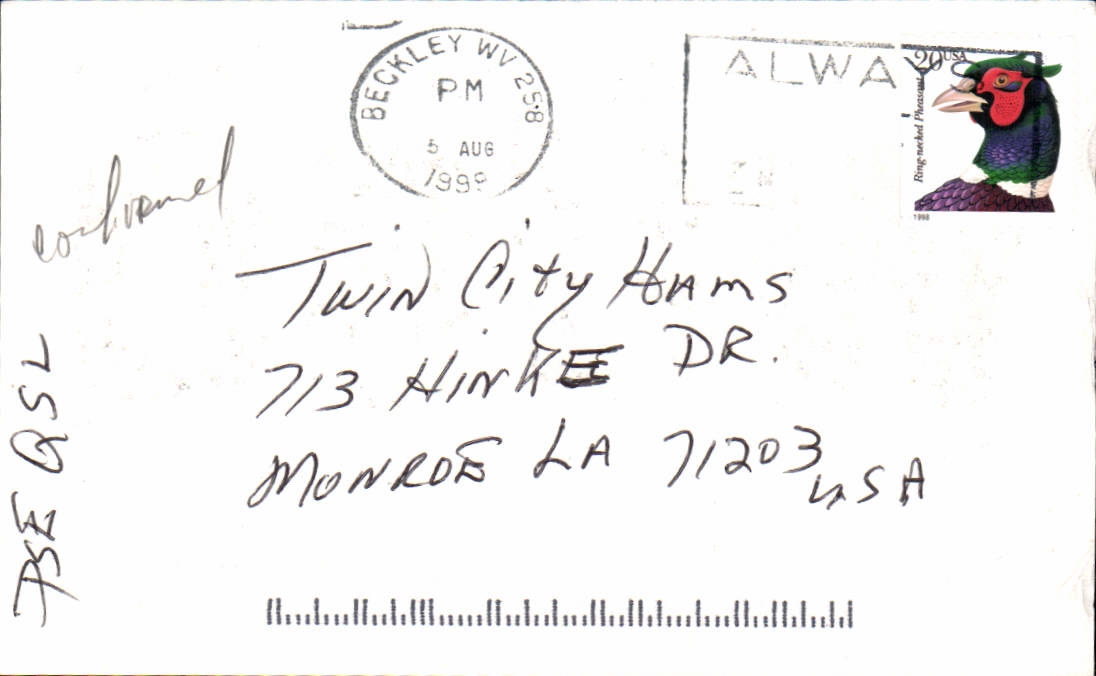 BECKLEY WV 258
PM
5 AUG
1999
ALWAYS
20USA
Ring-necked Pheasant
1998
confirmed
PSE QSL
Twin City Hams
713 Hinke DR.
Monroe LA 71203
USA